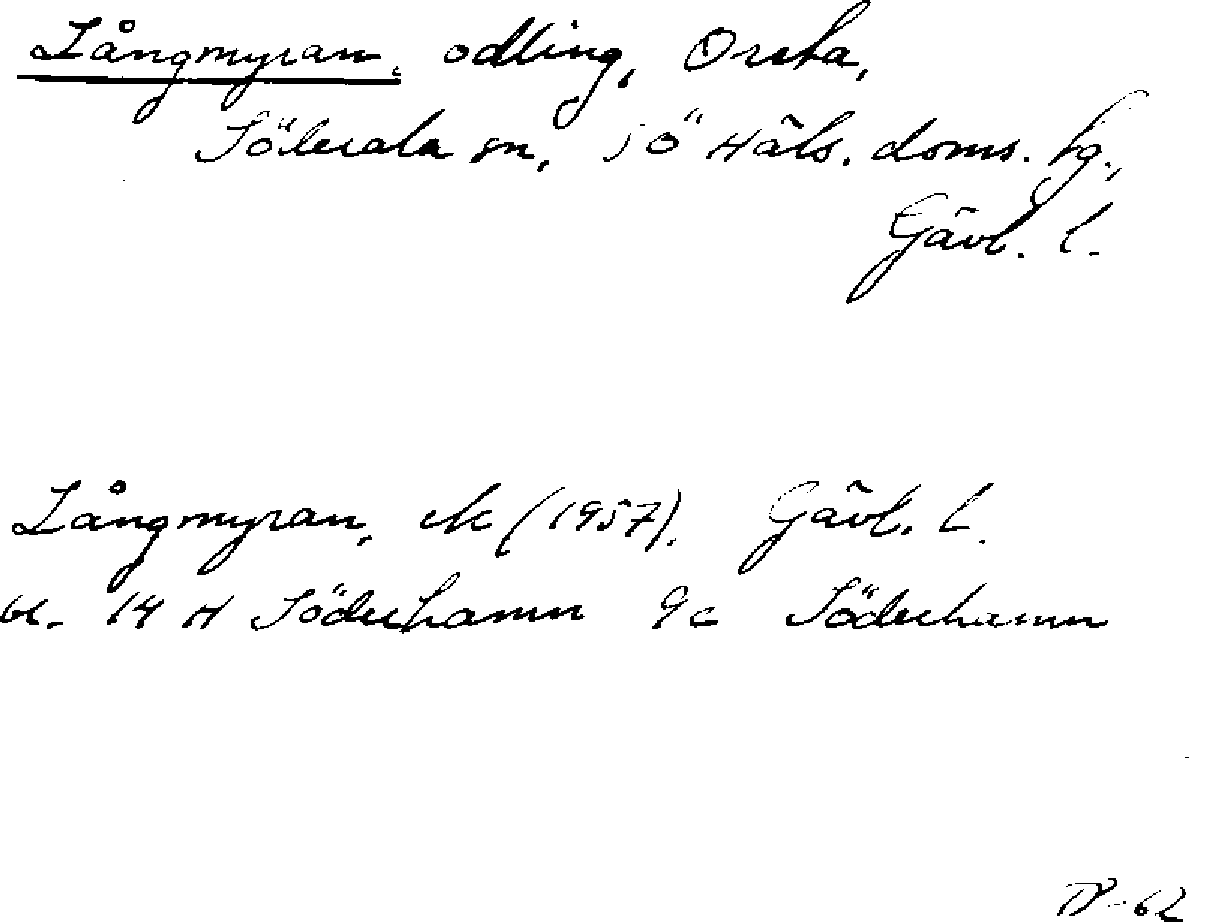 Långmyran, odling, Orsta,
Söderala sn, sö Häls. doms. hg.,
Gävl. l.
Långmyran, ek (1957). Gävl. l.
bl. 14 H Söderhamn 9c Söderhamn
-62